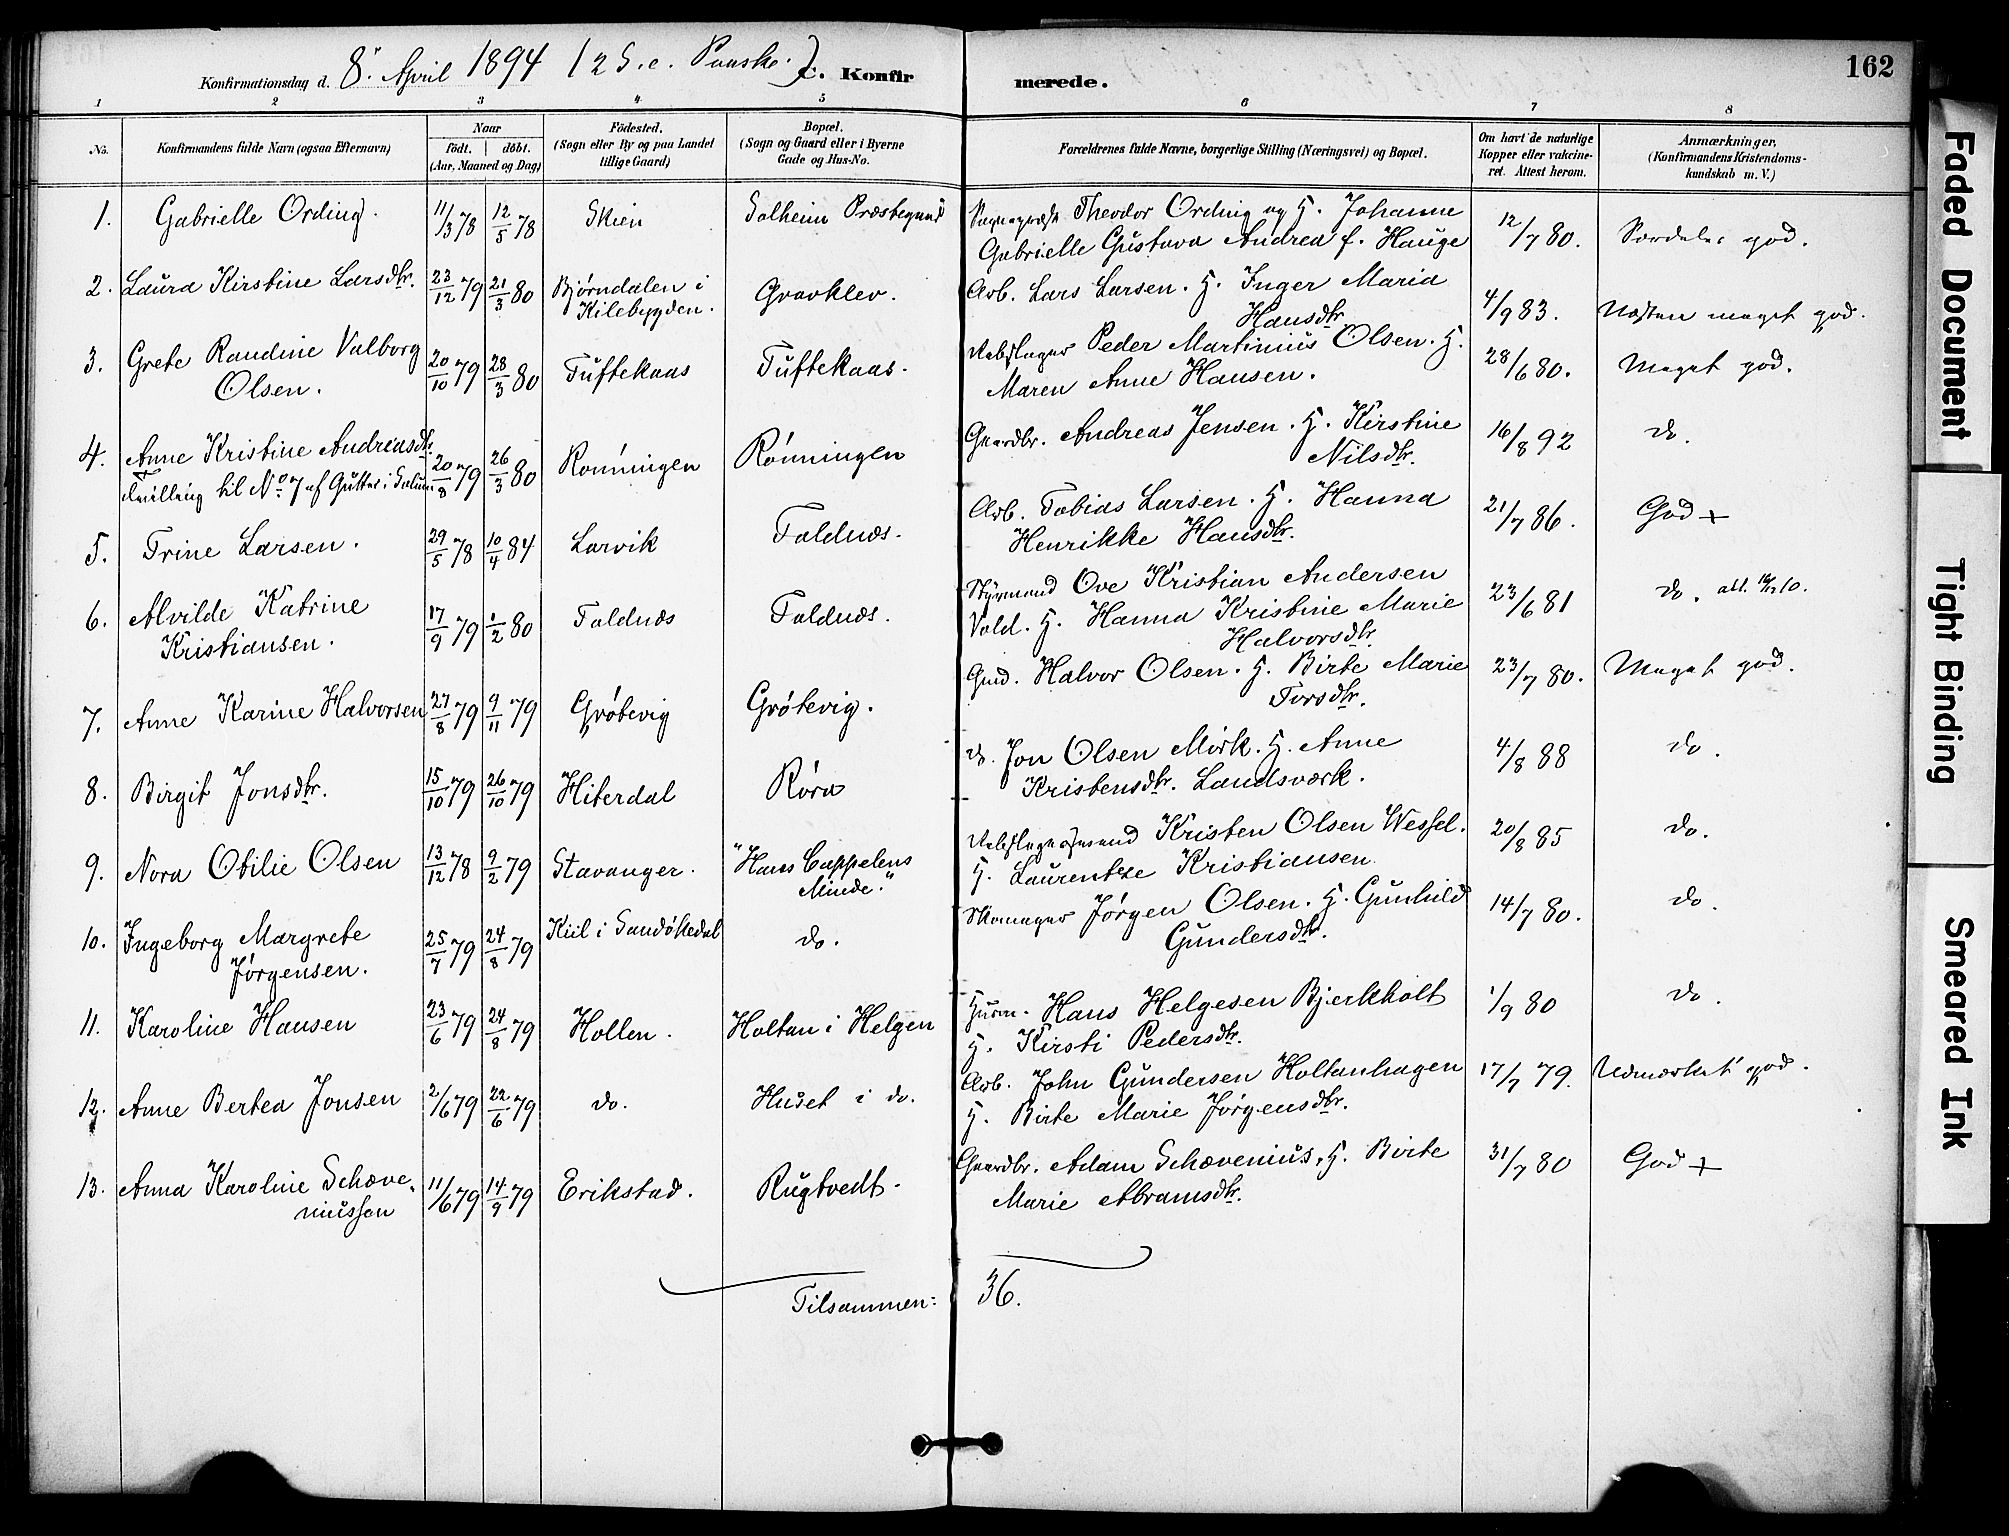 Konfirmationsdag d. 8. April 1894 (2 S. e. Paaske.) C. Konfirmerede. 162
1 2 3 4 5 6 7 8
No. Konfirmandens fulde Navn (ogsaa Efternavn) Naar født. døbt. (Aar, Maaned og Dag) Fødested. (Sogn eller By og paa Landet tillige Gaard) Bopæl. (Sogn og Gaard eller i Byerne Gade og Hus-No. Forældrenes fulde Navne, borgerlige Stilling (Næringsvei) og Bopæl. Om havt de naturlige Kopper eller vakcineret. Attest herom. Anmærkninger, (Konfirmandens Kristendomskundskab m. V.)
1. Gabrielle Ording. 11/3 78 12/5 78 Skien Solheim Præstegaard Sognepræst Theodor Ording og H. Johanne
Gabrielle Gustava Andrea f. Hauge 12/7 80. Særdeles god.
2. Laura Kirstine Larsdtr. 23/12 79 21/3 80 Bjørndalen i
Kilebygden. Gravklev. Arb. Lars Larsen. H. Inger Maria
Hansdtr. 4/9 83. Næsten meget god.
3. Grete Randine Valborg
Olsen. 20/10 79 28/3 80 Tuftekaas Tuftekaas. Rebslager Peder Martinius Olsen. H.
Maren Anne Hansen. 28/6 80. Meget god.
4. Anne Kristine Andreasdtr.
Tvilling til No 7 af Gutter i Solum 20/8 79 26/3 80 Rønningen Rønningen Gaardbr. Andreas Jensen. H. Kirstine
Nilsdtr. 16/8 92 do.
5. Trine Larsen. 29/5 78 10/4 84 Larvik Faldnæs. Arb. Tobias Larsen. H. Hanna
Henrikke Hansdtr. 21/7 86. God +
6. Alvilde Katrine
Kristiansen. 17/9 79 1/2 80 Faldnæs Faldnæs. Styrmand Ove Kristian Andersen
Vold. H. Hanna Kristine Marie
Halvorsdtr. 23/6 81 do. att.
7. Anne Karine Halvorsen 27/8 79 9/11 79 Grøtevig Grøtevig. Gmd. Halvor Olsen. H. Birte Marie
Torsdtr. 23/7 80. Meget god.
8. Birgit Jonsdtr. 15/10 79 26/10 79 Hiterdal Røra do. Jon Olsen Mørk. H. Anne
Kristensdtr. Landsværk. 4/8 88 do.
9. Nora Otilie Olsen 13/12 78 9/2 79 Stavanger. "Hans Cappelens
Minde." Kristen Olsen Wessel.
H. Laurentze Kristiansen. 20/8 85 do.
10. Ingeborg Margrete
Jørgensen. 25/7 79 24/8 79 Kiil i Sandøkedal do. Skomager Jørgen Olsen. H. Gunhild
Gundersdtr. 14/7 80. do.
11. Karoline Hansen 23/6 79 24/8 79 Hollen. Holtan i Helgen Husm. Hans Helgesen Bjerkholt
H. Kirsti Pedersdtr. 1/9 80 do.
12. Anne Bertea Jonsen 2/6 79 22/6 79 do. Huset i do. Arb. John Gundersen Holtanhagen
H. Birte Marie Jørgensdtr. 17/7 79. Udmærket god.
13. Anna Karoline Schæve-
niussen 11/6 79 14/9 79 Erikstad. Rugtvedt. Gaardbr. Adam Schævenius, H. Birte
Marie Abramsdtr. 31/7 80 God +
Tilsammen: 36.
Faded Document
Tight Binding
Smeared Ink